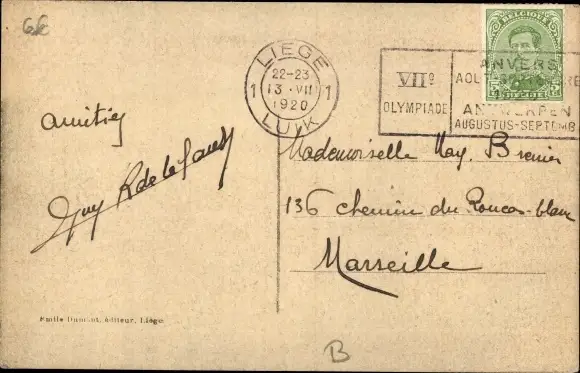 6€
BELGIQUE
LIEGE
22-23
1 13·VII 1
1920
LUIK
VIIe
OLYMPIADE
ANVERS
ANTWERPEN
AUGUSTUS-SEPTEMB
amitiés
Guy
Mademoiselle May. Brenier
136 chemin du Roucas-blanc
Marseille
Emile Dumont, éditeur, Liége
B